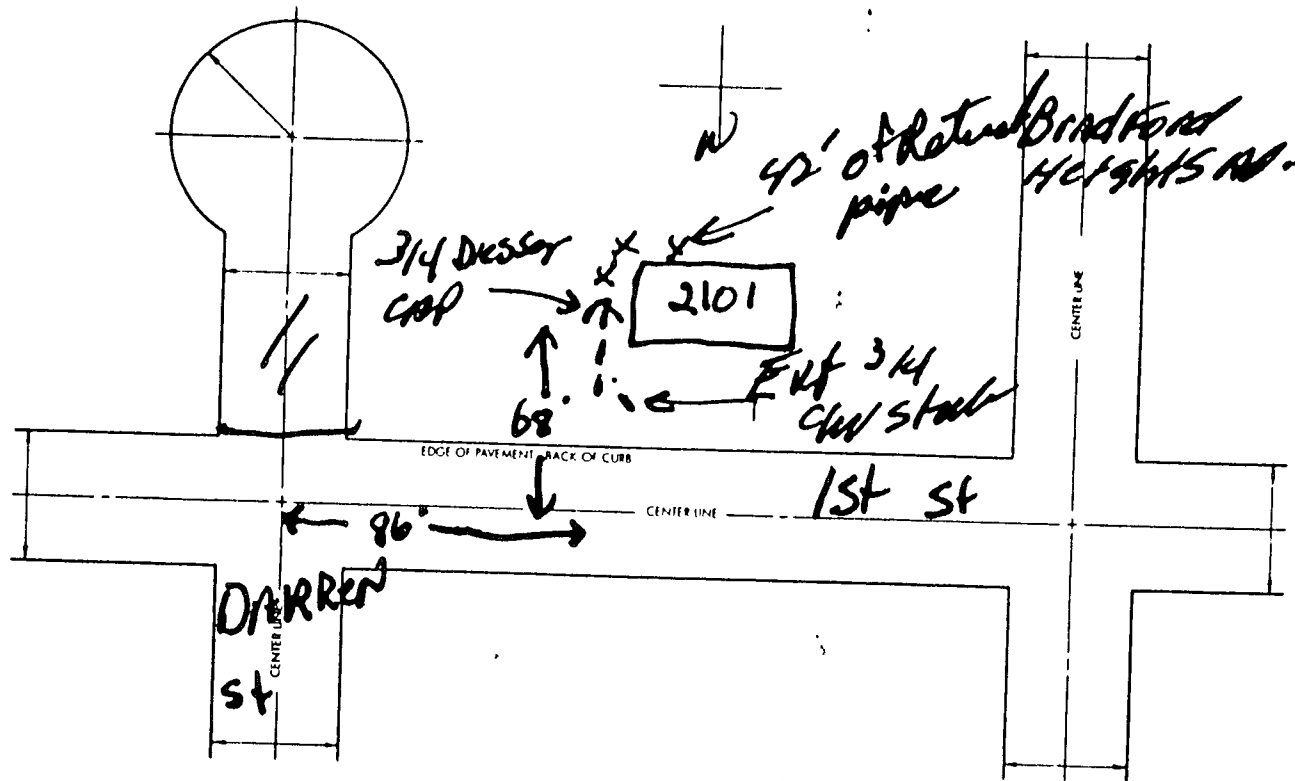 N
42' of Retired
pipe
BradFord
Heights Rd.
3/4 Dresser
CAP
2101
CENTER LINE
3/4
68'
EDGE OF PAVEMENT BACK OF CURB
1st st
CENTER LINE
86'
DARREN
st
CENTER LINE